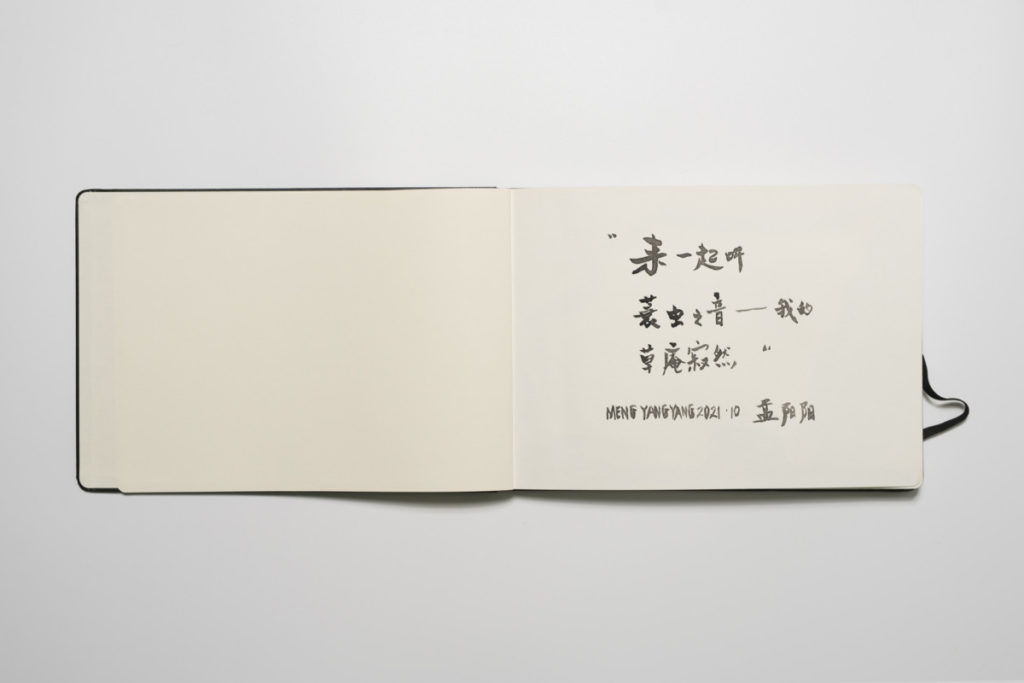 "来一起听
蓑虫之音——我的
草庵寂然"
MENG YANGYANG 2021·10 孟阳阳